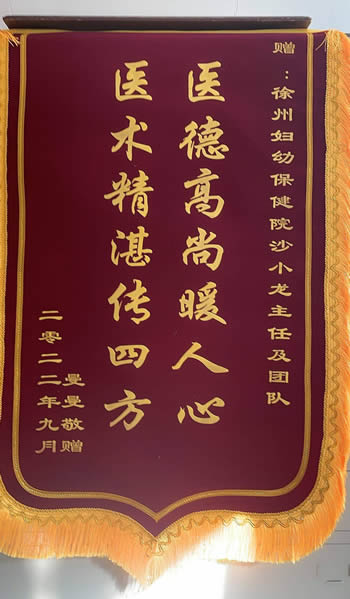 赠：徐州妇幼保健院沙小龙主任及团队
医德高尚暖人心
医术精湛传四方
曼曼敬赠
二零二二年九月